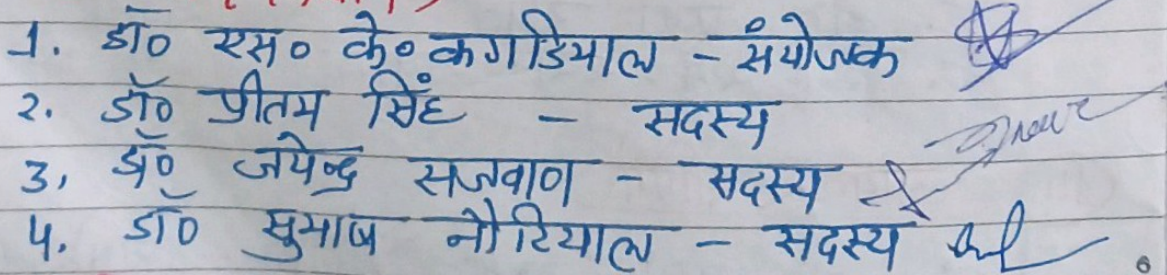 1. डॉ० एस० के० कगडियाल - संयोजक
2. डॉ० प्रीतम सिंह - सदस्य
3, डॉ० जयेन्द्र सजवाण - सदस्य
4. डॉ० सुभाष नौटियाल - सदस्य